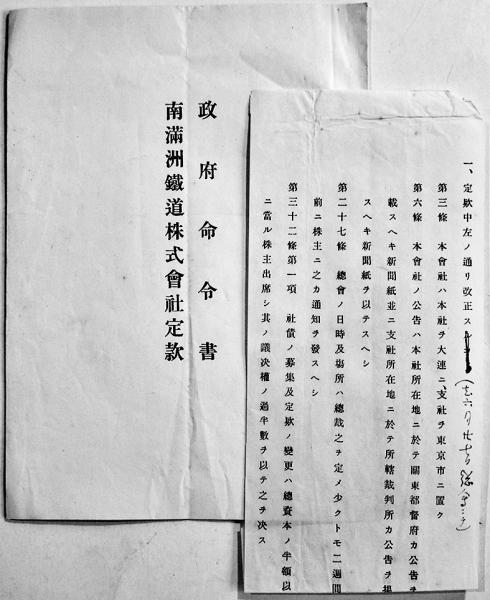 政府命令書
南滿洲鐵道株式會社定款
一、定款中左ノ通リ改正ス
第三條　本會社ハ本社ヲ大連ニ、支社ヲ東京市ニ置ク
第六條　本會社ノ公告ハ本社所在地ニ於テ關東都督府カ公告ヲ
載スヘキ新聞紙並ニ支社所在地ニ於テ所轄裁判所カ公告ヲ掲
スヘキ新聞紙ヲ以テスヘシ
第二十七條　總會ノ日時及場所ハ總裁之ヲ定メ少クトモ二週間
前ニ株主ニ之カ通知ヲ發スヘシ
第三十二條第一項　社債ノ募集及定款ノ變更ハ總資本ノ半額以
ニ當ル株主出席シ其ノ議決權ノ過半數ヲ以テ之ヲ決ス